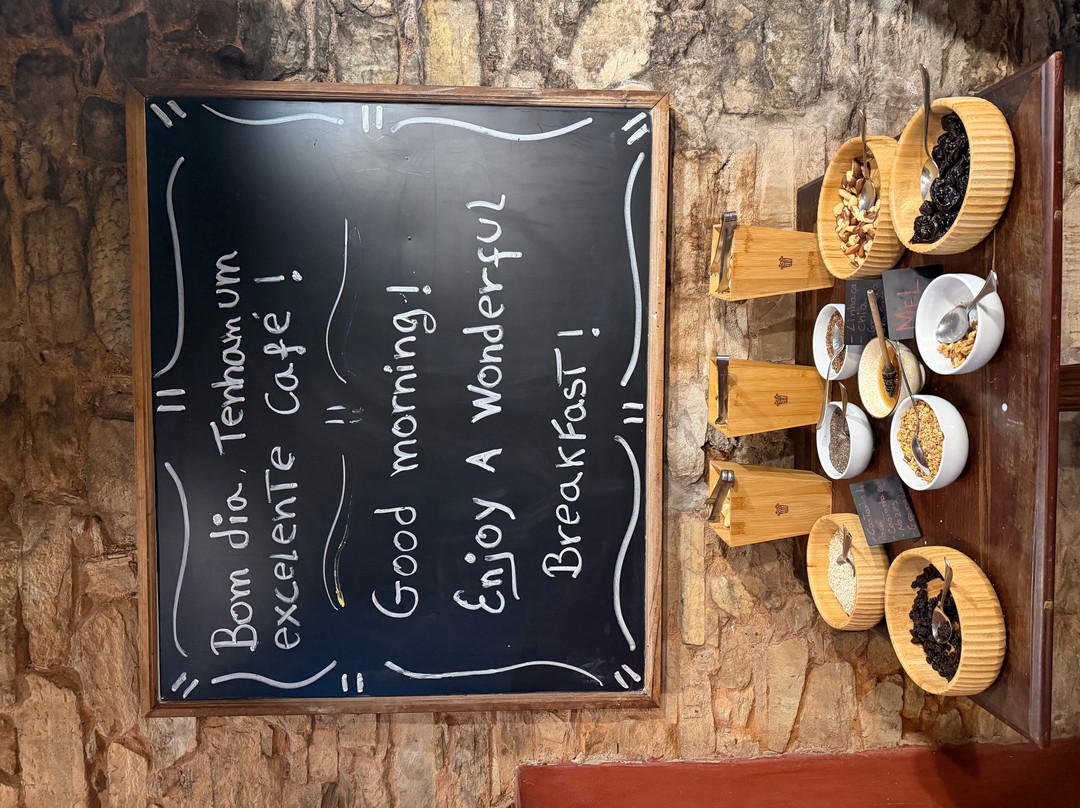 Bom dia, Tenham um
excelente café!
Good morning!
Enjoy A Wonderful
Breakfast!
Linhaça
chia
MEL